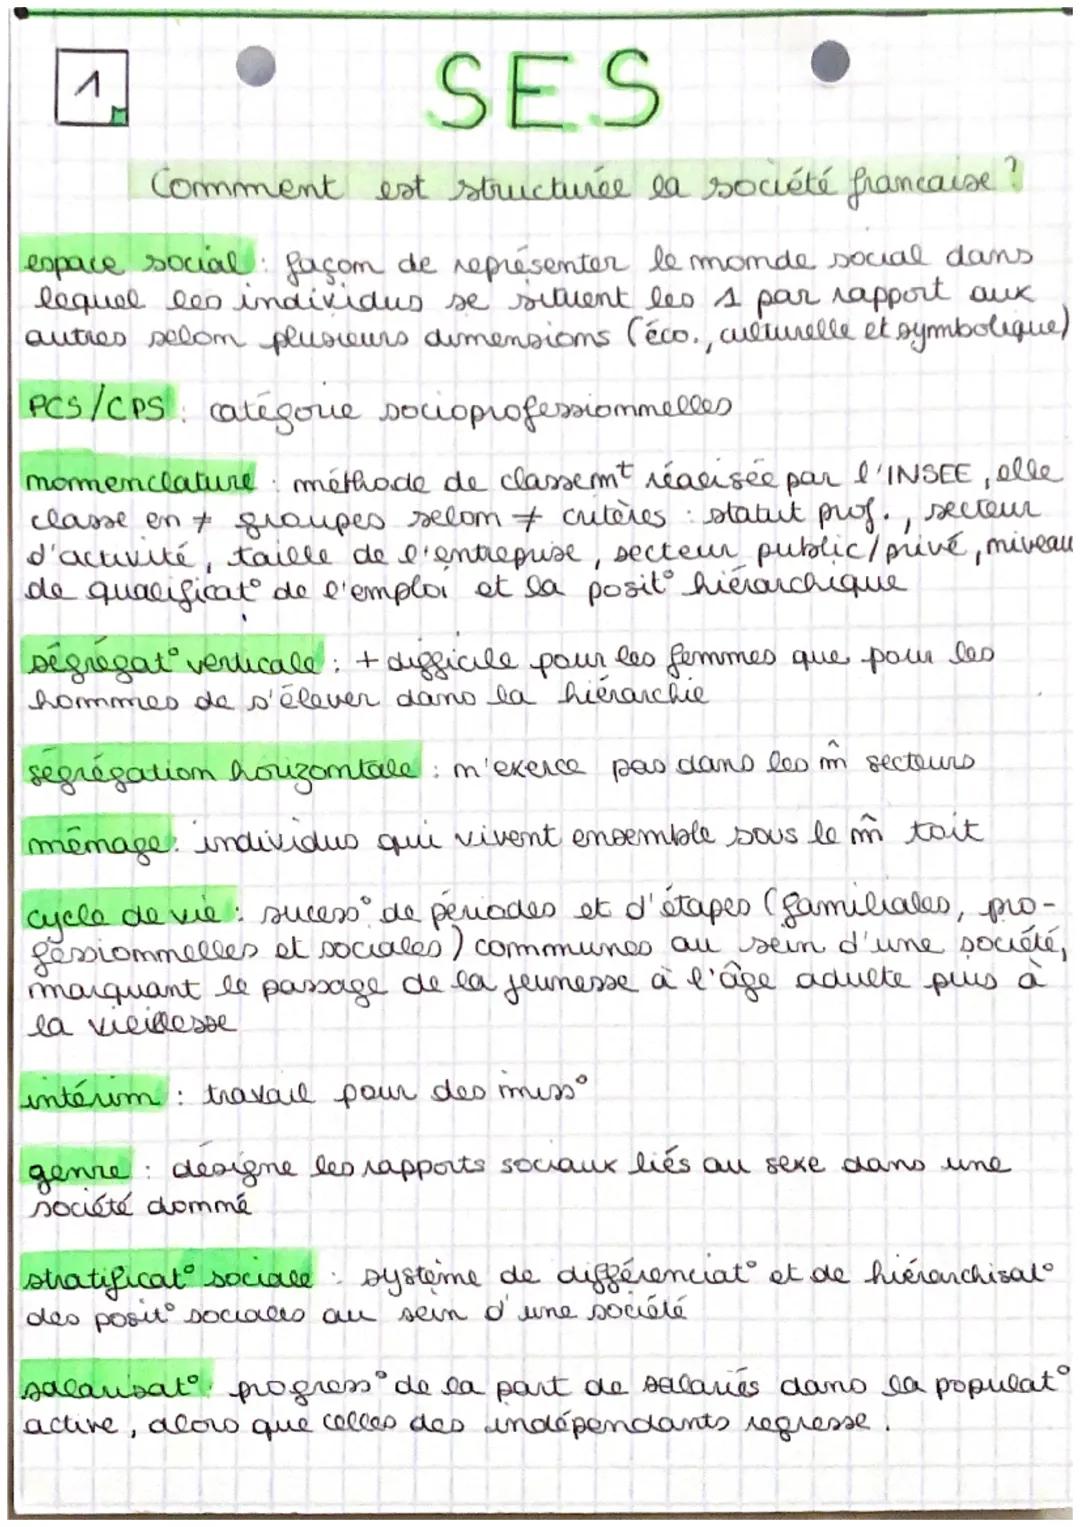 1
SES
Comment est structurée la société francaise ?
espace social : façon de représenter le monde social dans
lequel les individus se situent les 1 par rapport aux
autres selon plusieurs dimensions (éco., culturelle et symbolique)
PCS/CPS : catégorie socioprofessionnelles
nomenclature : méthode de classemt réalisée par l'INSEE, elle
classe en ≠ groupes selon ≠ critères : statut prof., secteur
d'activité, taille de l'entreprise, secteur public/privé, niveau
de qualificat° de l'emploi et la posit° hiérarchique
ségrégat° verticale : + difficile pour les femmes que pour les
hommes de s'élever dans la hiérarchie
ségrégation horizontale : n'exerce pas dans les m̂ secteurs
ménage : individus qui vivent ensemble sous le m̂ toit
cycle de vie : sucess° de périodes et d'étapes (familiales, pro-
fessionnelles et sociales) communes au sein d'une société,
marquant le passage de la jeunesse à l'âge adulte puis à
la vieillesse
intérim : travail pour des miss°
genre : désigne les rapports sociaux liés au sexe dans une
société donné
stratificat° sociale : système de différenciat° et de hiérarchisat°
des posit° sociales au sein d'une société
salarisat° : progress° de la part de salariés dans la populat°
active, alors que celles des indépendants regresse.